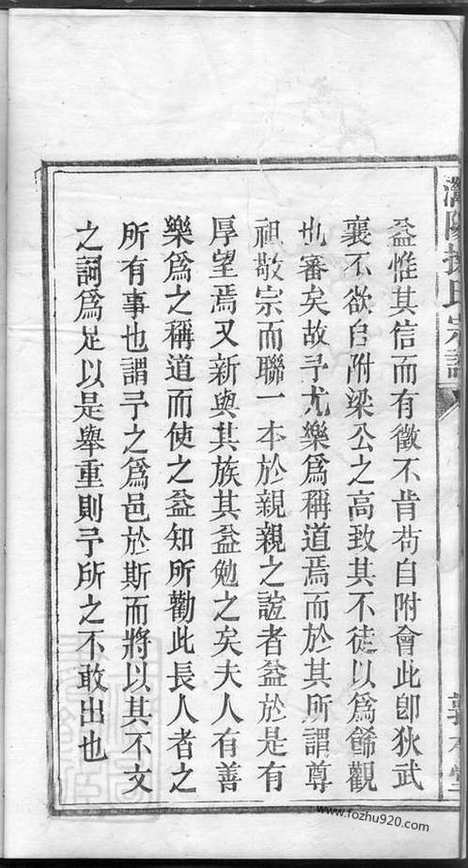 益惟其信而有徵不肯茍自附會此卽狄武
襄不欲自附梁公之高致其不徒以爲飾觀
也審矣故予尤樂爲稱道焉而於其所謂尊
祖敬宗而聯一本於親親之誼者益於是有
厚望焉又新與其族其益勉之矣夫人有善
樂爲之稱道而使之益知所勸此長人者之
所有事也謂予之爲邑於斯而將以其不文
之詞爲足以是舉重則予所之不敢出也
氏宗譜
www.fozhu920.com